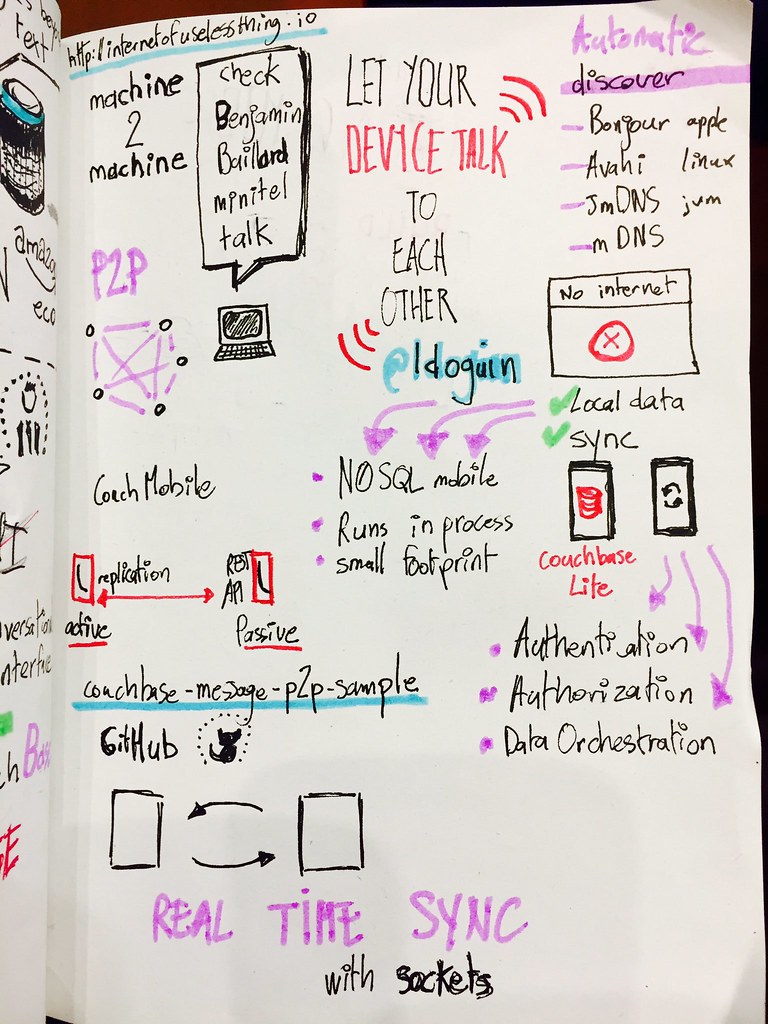 text
amazon
eco
N
interface
http://internetofuselessthing.io
machine
2
machine
check
Benjamin
Baillard
minitel
talk
P2P
LET YOUR
DEVICE TALK
TO
EACH
OTHER
@ldoguin
Automatic
discover
Bonjour apple
Avahi linux
JmDNS jvm
mDNS
No internet
Local data
sync
NOSQL mobile
Runs in process
small footprint
Couchbase
Lite
Authentication
Authorization
Data Orchestration
CouchMobile
replication
REST
API
active
Passive
couchbase-message-p2p-sample
GitHub
REAL TIME SYNC
with sockets